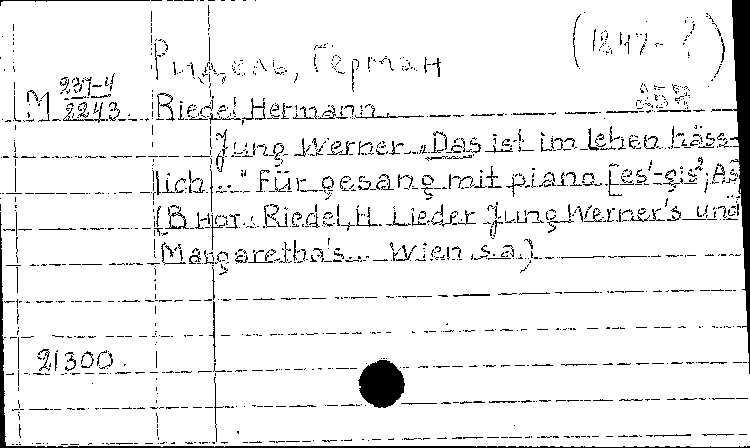 Ридель, Герман (1847-?)
M 237-4
2243 Riedel, Hermann. 257
Jung Werner „Das ist im leben häss-
lich..." Für gesang mit piano [es'-gis²; As
(В нот.: Riedel, H. Lieder Jung Werner's und
Margaretha's... Wien, s.a.)
21300.